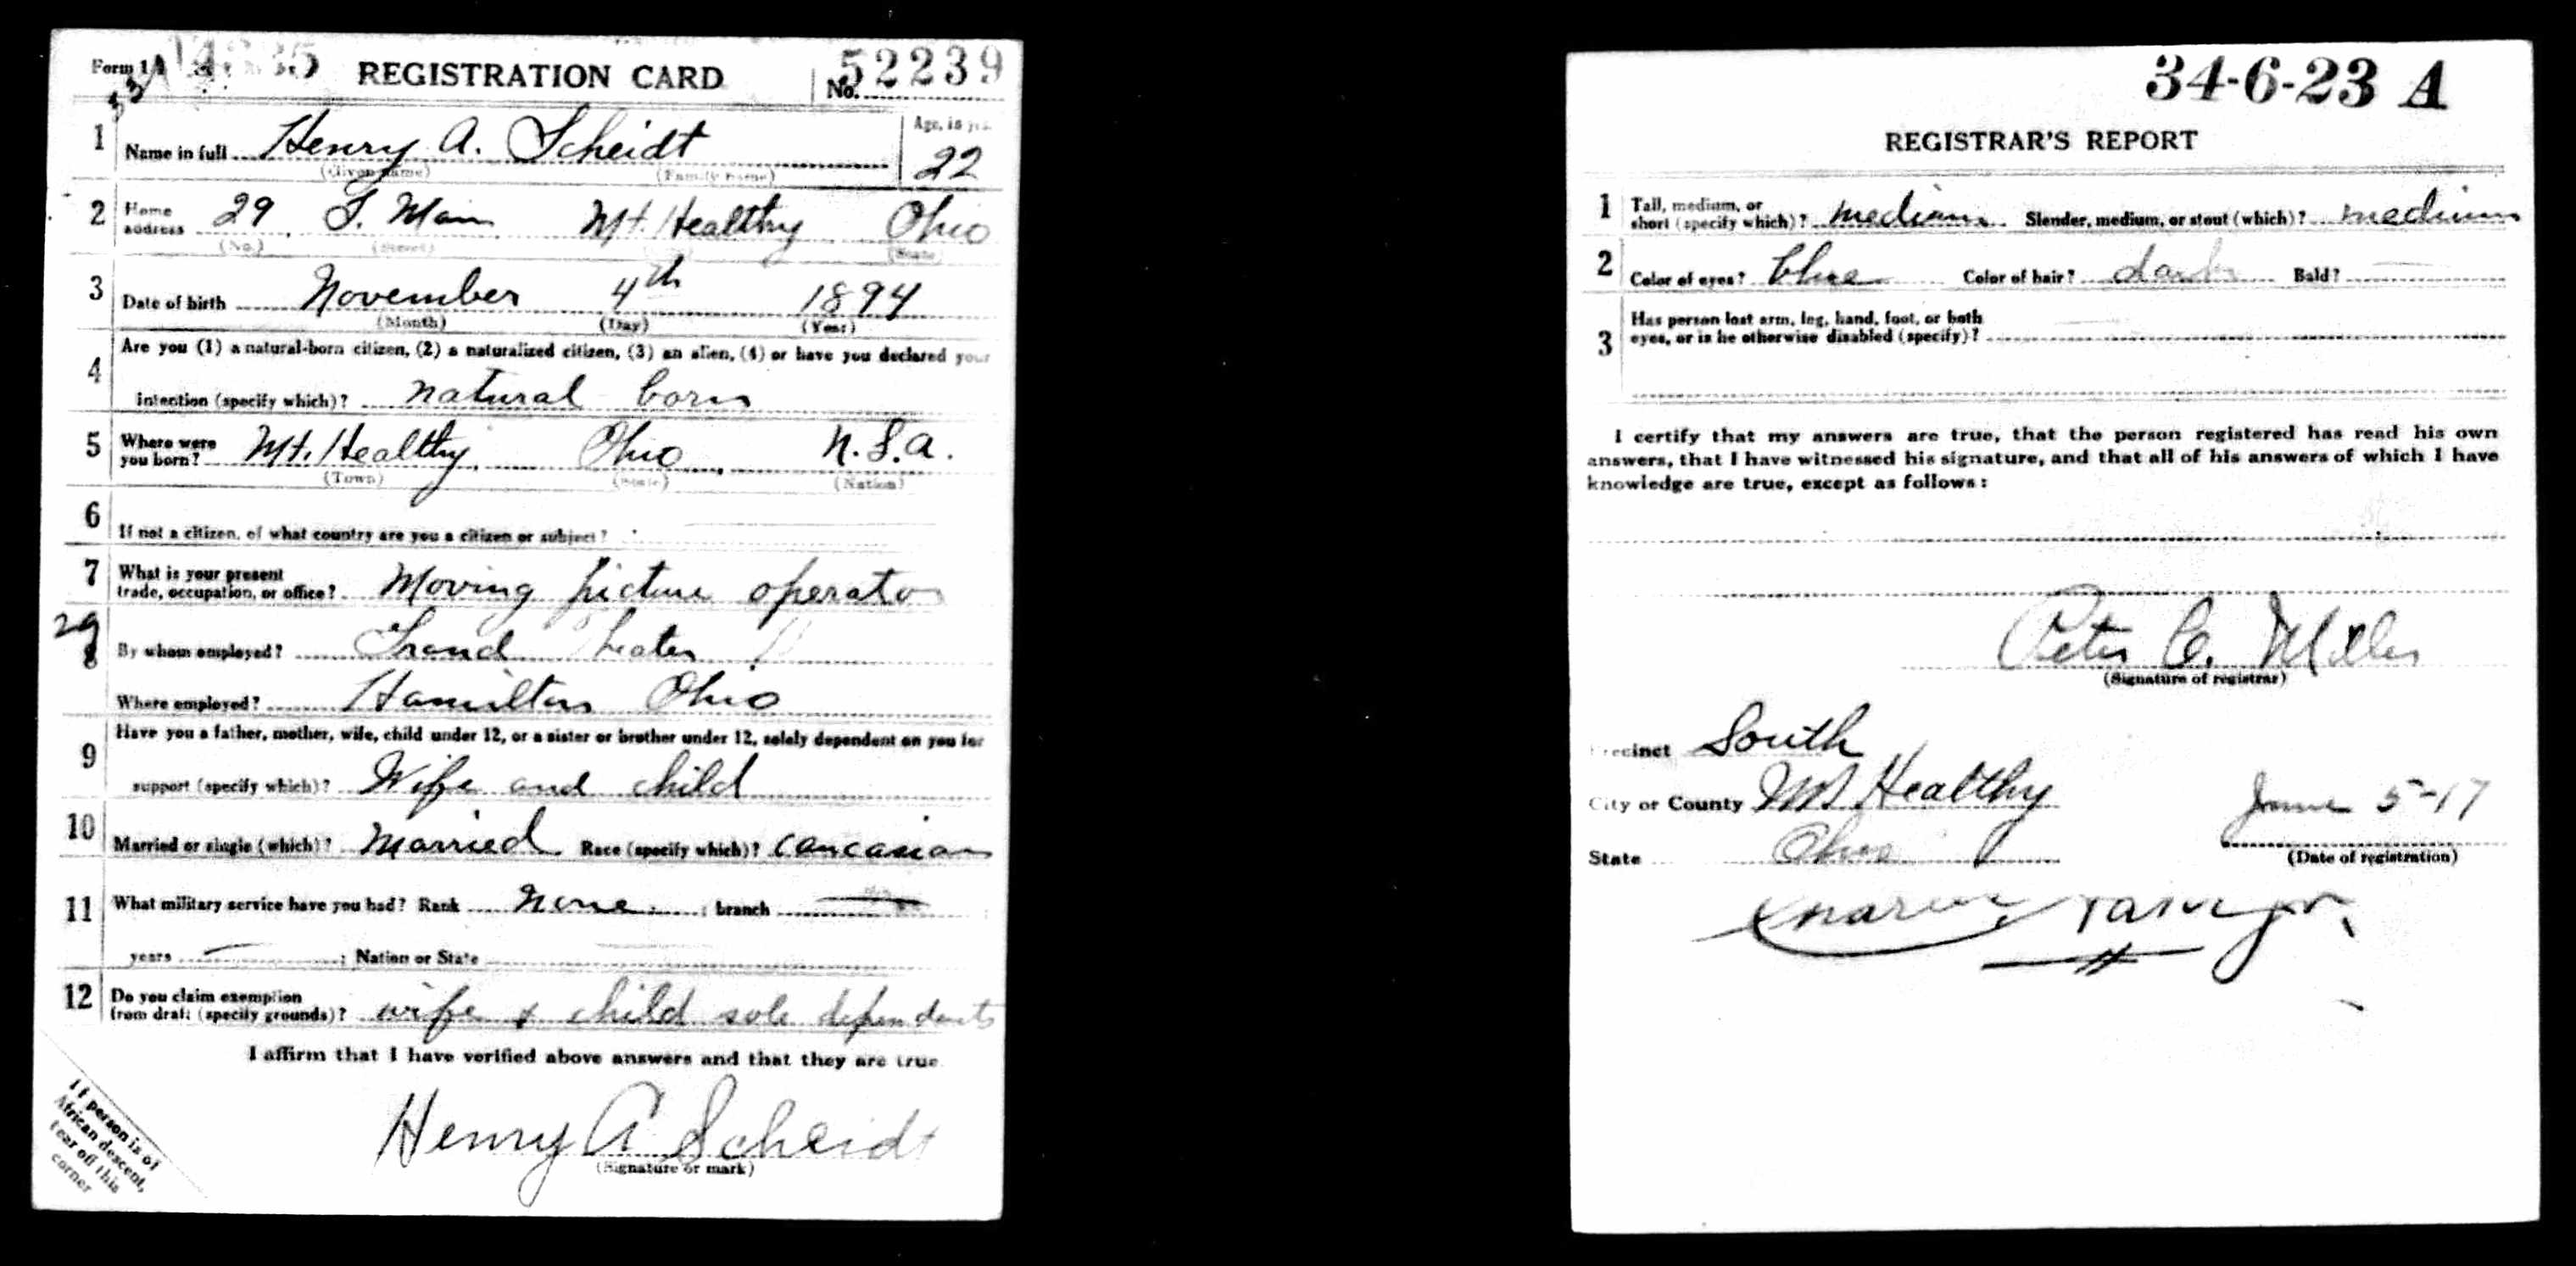 Form 1
REGISTRATION CARD
No. 52239
1 Name in full Henry A. Scheidt
(Given name) (Family name)
Age, in yrs.
22
2 Home address 29 S. Main Mt. Healthy Ohio
(No.) (Street) (State)
3 Date of birth November 4th 1894
(Month) (Day) (Year)
4 Are you (1) a natural-born citizen, (2) a naturalized citizen, (3) an alien, (4) or have you declared your
intention (specify which)? natural born
5 Where were you born? Mt. Healthy, Ohio, U.S.A.
(Town) (State) (Nation)
6 If not a citizen, of what country are you a citizen or subject?
7 What is your present trade, occupation, or office? Moving picture operator
29
8 By whom employed? Grand Theater
Where employed? Hamilton Ohio
9 Have you a father, mother, wife, child under 12, or a sister or brother under 12, solely dependent on you for
support (specify which)? Wife and child
10 Married or single (which)? Married Race (specify which)? Caucasian
11 What military service have you had? Rank None; branch
years ; Nation or State
12 Do you claim exemption from draft (specify grounds)? wife & child sole dependants
I affirm that I have verified above answers and that they are true
Henry A Scheidt
(Signature or mark)
If person is of
African descent,
tear off this
corner
34-6-23 A
REGISTRAR'S REPORT
1 Tall, medium, or short (specify which)? medium Slender, medium, or stout (which)? medium
2 Color of eyes? blue Color of hair? dark Bald?
3 Has person lost arm, leg, hand, foot, or both
eyes, or is he otherwise disabled (specify)?
I certify that my answers are true, that the person registered has read his own
answers, that I have witnessed his signature, and that all of his answers of which I have
knowledge are true, except as follows:
Peter C. Miller
(Signature of registrar)
Precinct South
City or County Mt Healthy
State Ohio
June 5-17
(Date of registration)